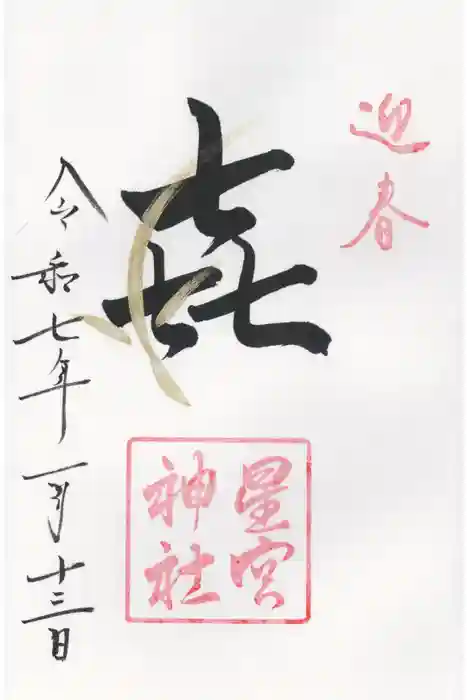 迎春
㐂
星宮
神社
令和七年一月十三日